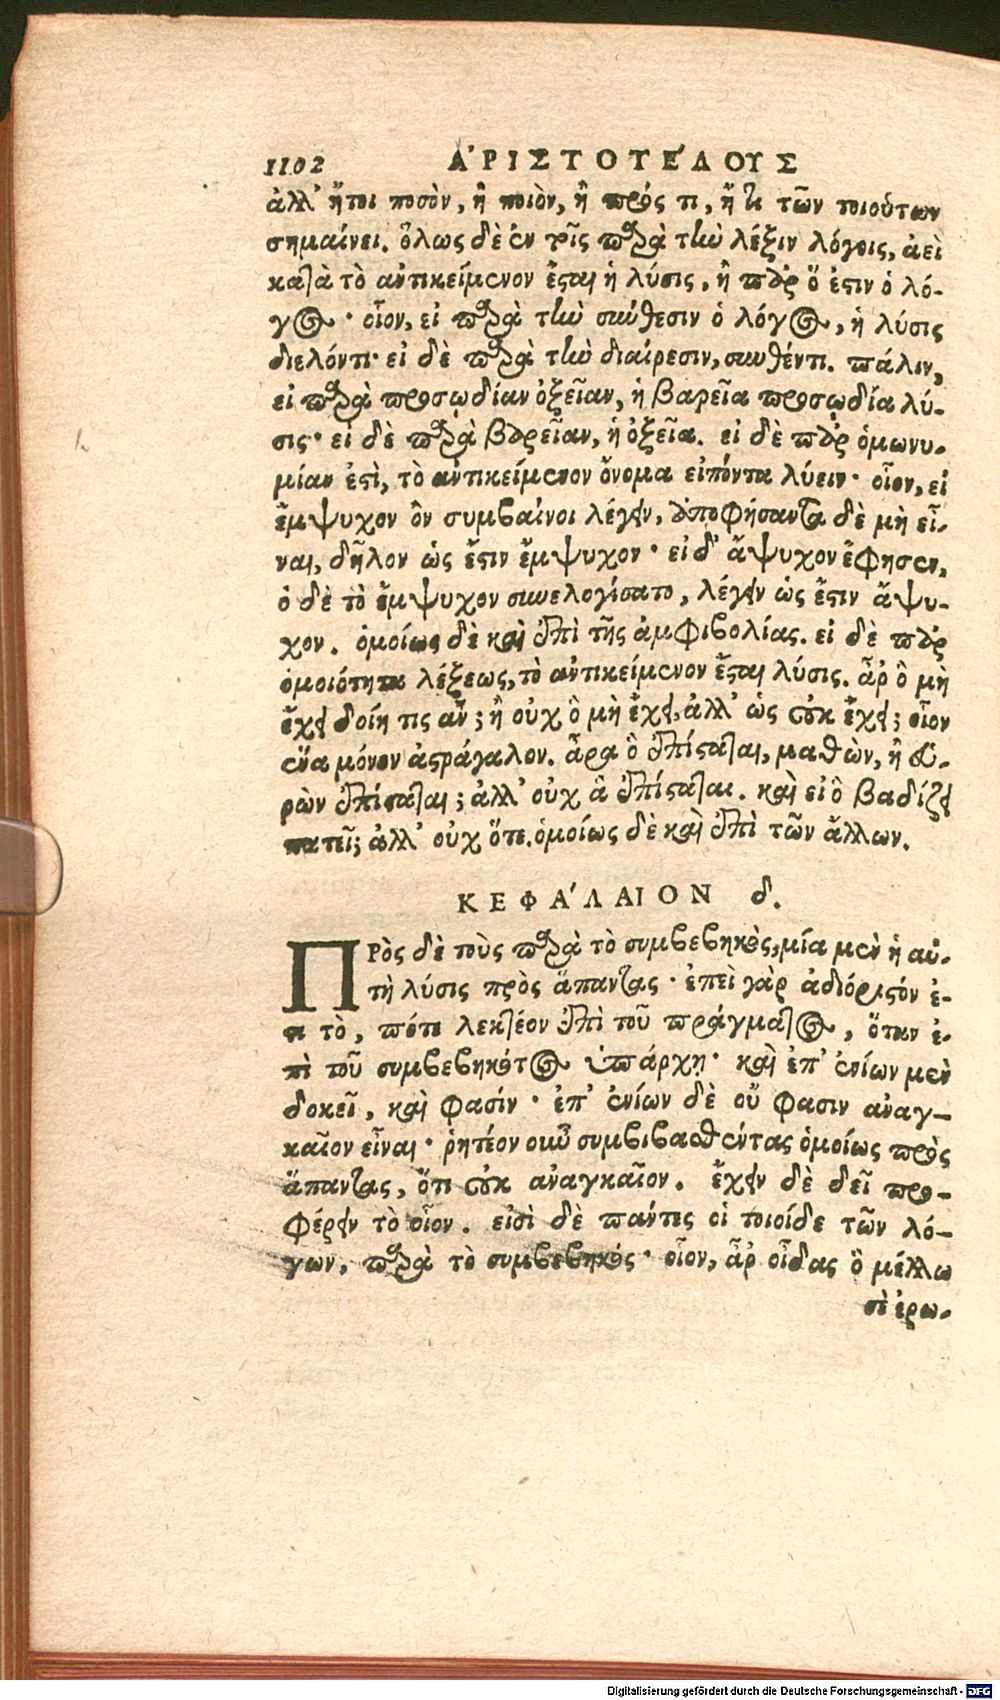 1102 ἈΡΙΣΤΟΤΈΛΟΥΣ
ἀλλ' ἤτοι ποσὸν, ἢ ποιὸν, ἢ πρός τι, ἤ τι τῶν τοιούτων
σημαίνει. ὅλως δὲ ἐν τοῖς παρὰ τὴν λέξιν λόγοις, ἀεὶ
κατὰ τὸ ἀντικείμενον ἔσται ἡ λύσις, ἢ παρ' ὅ ἐστιν ὁ λό-
γος· οἷον, εἰ παρὰ τὴν σύνθεσιν ὁ λόγος, ἡ λύσις
διελόντι· εἰ δὲ παρὰ τὴν διαίρεσιν, συνθέντι. πάλιν,
εἰ παρὰ προσῳδίαν ὀξεῖαν, ἡ βαρεῖα προσῳδία λύ-
σις· εἰ δὲ παρὰ βαρεῖαν, ἡ ὀξεῖα. εἰ δὲ παρ' ὁμωνυ-
μίαν ἐστὶ, τὸ ἀντικείμενον ὄνομα εἰπόντα λύειν· οἷον, εἰ
ἔμψυχον ὂν συμβαίνοι λέγειν, ἀποφήσαντα δὲ μὴ εἶ-
ναι, δῆλον ὡς ἔστιν ἔμψυχον· εἰ δ' ἄψυχον ἔφησεν,
ὁ δὲ τὸ ἔμψυχον συνελογίσατο, λέγειν ὡς ἔστιν ἄψυ-
χον. ὁμοίως δὲ καὶ ἐπὶ τῆς ἀμφιβολίας. εἰ δὲ παρ'
ὁμοιότητα λέξεως, τὸ ἀντικείμενον ἔσται λύσις. ἆρ' ὃ μὴ
ἔχει δοίη τις ἄν; ἢ οὐχ ὃ μὴ ἔχει, ἀλλ' ὡς οὐκ ἔχει; οἷον
ἕνα μόνον ἀστράγαλον. ἆρα ὃ ἐπίσταται, μαθὼν, ἢ εὑ-
ρὼν ἐπίσταται; ἀλλ' οὐχ ἃ ἐπίσταται. καὶ εἰ ὃ βαδίζει
πατεῖ; ἀλλ' οὐχ ὅτε. ὁμοίως δὲ καὶ ἐπὶ τῶν ἄλλων.
ΚΕΦΆΛΑΙΟΝ δ.
ΠΡὸς δὲ τοὺς παρὰ τὸ συμβεβηκὸς, μία μὲν ἡ αὐ-
τὴ λύσις πρὸς ἅπαντας· ἐπεὶ γὰρ ἀδιόριστόν ἐ-
στι τὸ, πότε λεκτέον ἐπὶ τοῦ πράγματος, ὅταν ἐ-
πὶ τοῦ συμβεβηκότος ὑπάρχῃ· καὶ ἐπ' ἐνίων μὲν
δοκεῖ, καὶ φασίν· ἐπ' ἐνίων δὲ οὔ φασιν ἀναγ-
καῖον εἶναι· ῥητέον οὖν συμβιβασθέντας ὁμοίως πρὸς
ἅπαντας, ὅτι οὐκ ἀναγκαῖον. ἔχειν δὲ δεῖ προ-
φέρειν τὸ οἷον. εἰσὶ δὲ πάντες οἱ τοιοίδε τῶν λό-
γων, παρὰ τὸ συμβεβηκός· οἷον, ἆρ' οἶδας ὃ μέλλω
σὲ ἐρω-
Digitalisierung gefördert durch die Deutsche Forschungsgemeinschaft - DFG